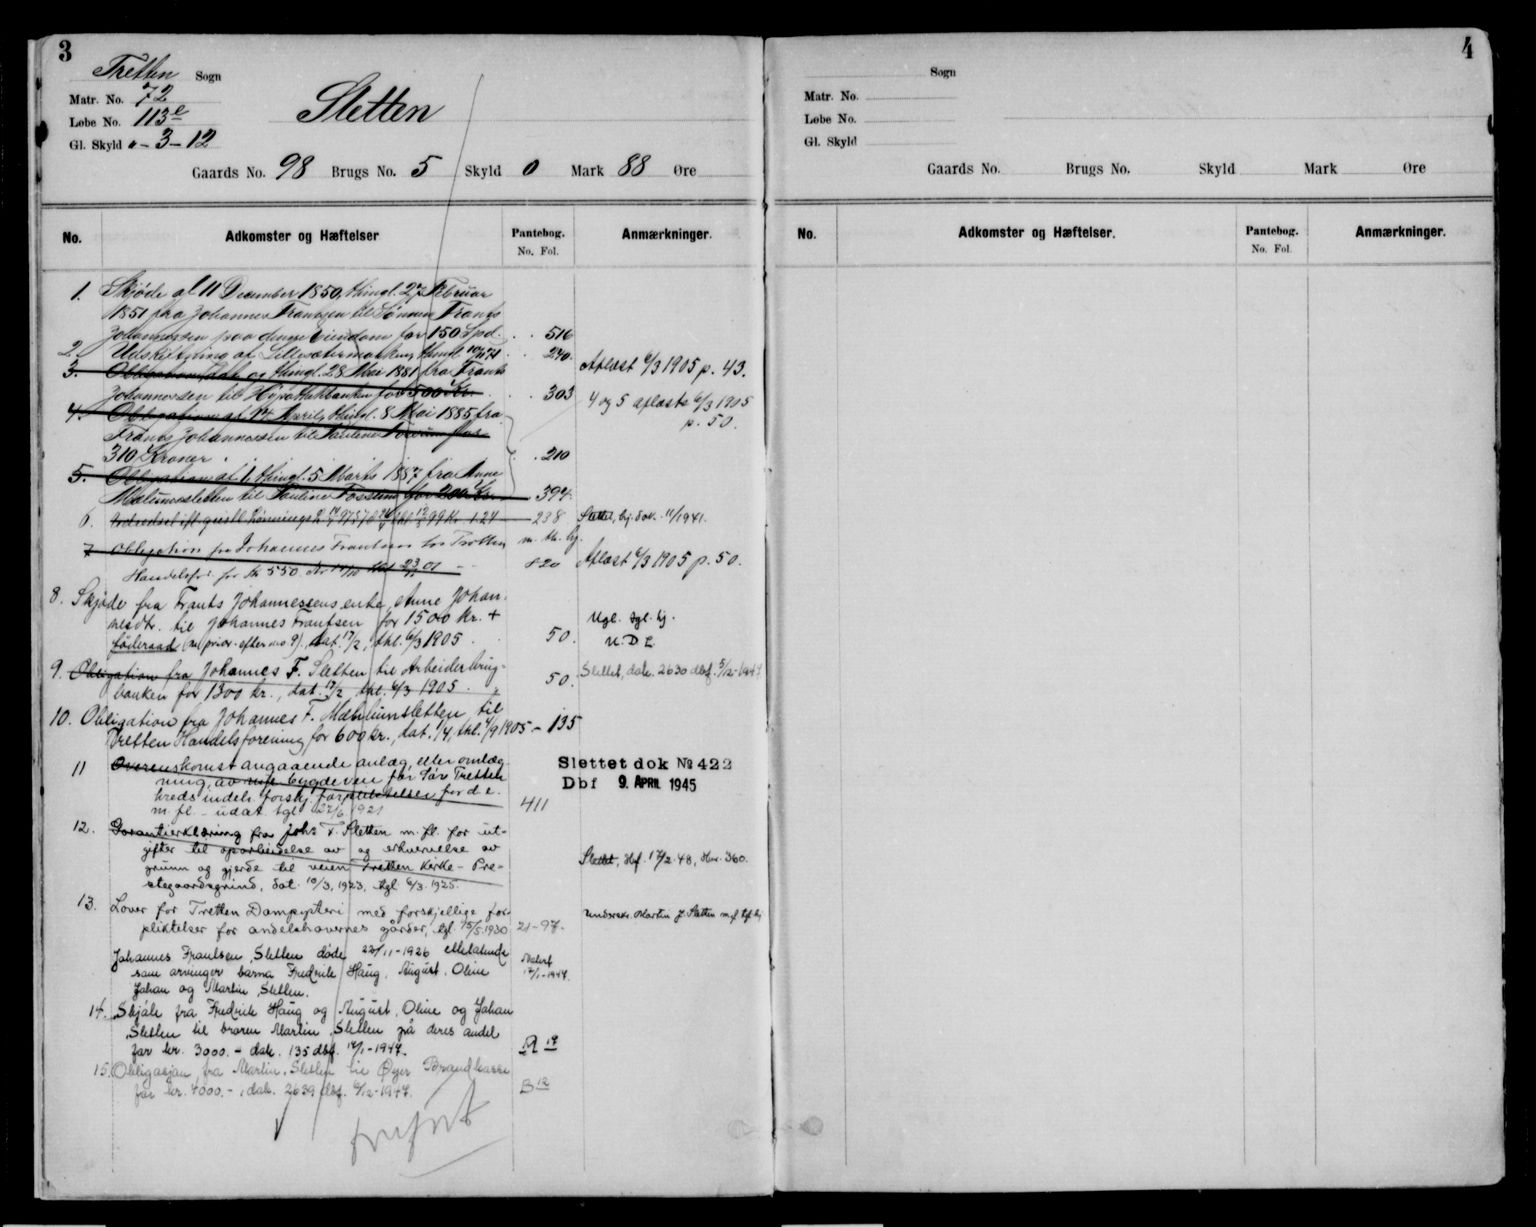 3
Tretten Sogn
Matr. No. 72
Løbe No. 113e
Gl. Skyld 0-3-12
Sletten
Gaards No. 98 Brugs No. 5 Skyld 0 Mark 88 Øre
No. Adkomster og Hæftelser Pantebog. No. Fol. Anmærkninger.
1. Skjøde af 11 December 1850, thingl. 27 Februar
1851 fra Johannes Frantzen til Sønnen Frants
Johannessen paa denne Eiendom for 150 Spd. 516
2. Udskiftning af thingl. 240.
3. Obligation dat. og thingl. 28 Mai 1881 fra Frants
Johannessen til Hypothekbanken for 500 Kr. 303
Aflæst 6/3 1905 p. 43.
4. Obligation af 14 April, thingl. 8 Mai 1885 fra
Frants Johannessen til Pauline Fossum for
310 Kroner 210
4 og 5 aflæste 6/3 1905
p. 50.
5. Obligation af 1, thingl. 5 Marts 1887 fra Anne
til Pauline Fossum for 200 Kr. 394.
6. 238 Slettet, bj. dok. 11/1941.
m. th. bj.
7 Obligation fra Johannes Frantsen til Tretten
Handelsfor. for Kr 550. 820 Aflæst 6/3 1905 p. 50.
8. Skjøde fra Frants Johannessens enke, Anne Johan-
nesdtr. til Johannes Frantsen for 1500 kr. +
føderaad (m prior. efter no 9), dat. 17/2, thl. 6/3 1905. 50.
Ugl. tgl. bj.
U. D. L.
9. Obligation fra Johannes F. Sletten til Arbeiderbrug-
banken for 1300 kr., dat. 17/2, thl. 6/3 1905. 50.
Slettet, dok. 2630 dbf. 5/12-1947
10. Obligation fra Johannes F. Mæhlumsletten til
Tretten Handelsforening for 600 kr., dat. 1/4, thl. 4/9 1905 - 135
11 Overenskomst angaaende anlæg, eller omlæg-
ning, av bygdevei for Sør Tretten
kreds indeh. forskj. forpliktelser for d. e.
m. fl. - udat. tgl. 22/6 1921 411
Slettet dok № 422
Dbf 9. APRIL 1945
12. Garantierklæring fra Johs F. Sletten m. fl. for ut-
gifter til oparbeidelse av og erhvervelse av
grunn og gjerde til veien Tretten Kirke - Pre-
stegaardsgrind, dat. 10/3, 1923, tgl. 6/3. 1925.
Slettet, dbf. 17/2. 48, 360.
13. Lover for Tretten Dampysteri med forskjellige for-
pliktelser for andelshavernes gårder, tgl. 15/5. 1930 21-97.
Underskr. Martin J. Sletten m. fl. tgl. bj.
Johannes Frantsen Sletten døde 22/11-1926 etterlatende
som arvinger barna Fredrik Haug, August, Oline
Johan og Martin Sletten.
Notert
17/1-1947.
14. Skjøte fra Fredrik Haug og August, Oline og Johan
Sletten til broren Martin Sletten på deres andel
for kr. 3000.- dok. 135 dbf. 17/1-1947.
15. Obligasjon fra Martin Sletten til Øyer Brandkasse
for kr. 4000.-, dok. 2639 dbf. 6/12-1947. B 12
4
Sogn
Matr. No.
Løbe No.
Gl. Skyld
Gaards No. Brugs No. Skyld Mark Øre
No. Adkomster og Hæftelser. Pantebog. No. Fol. Anmærkninger.